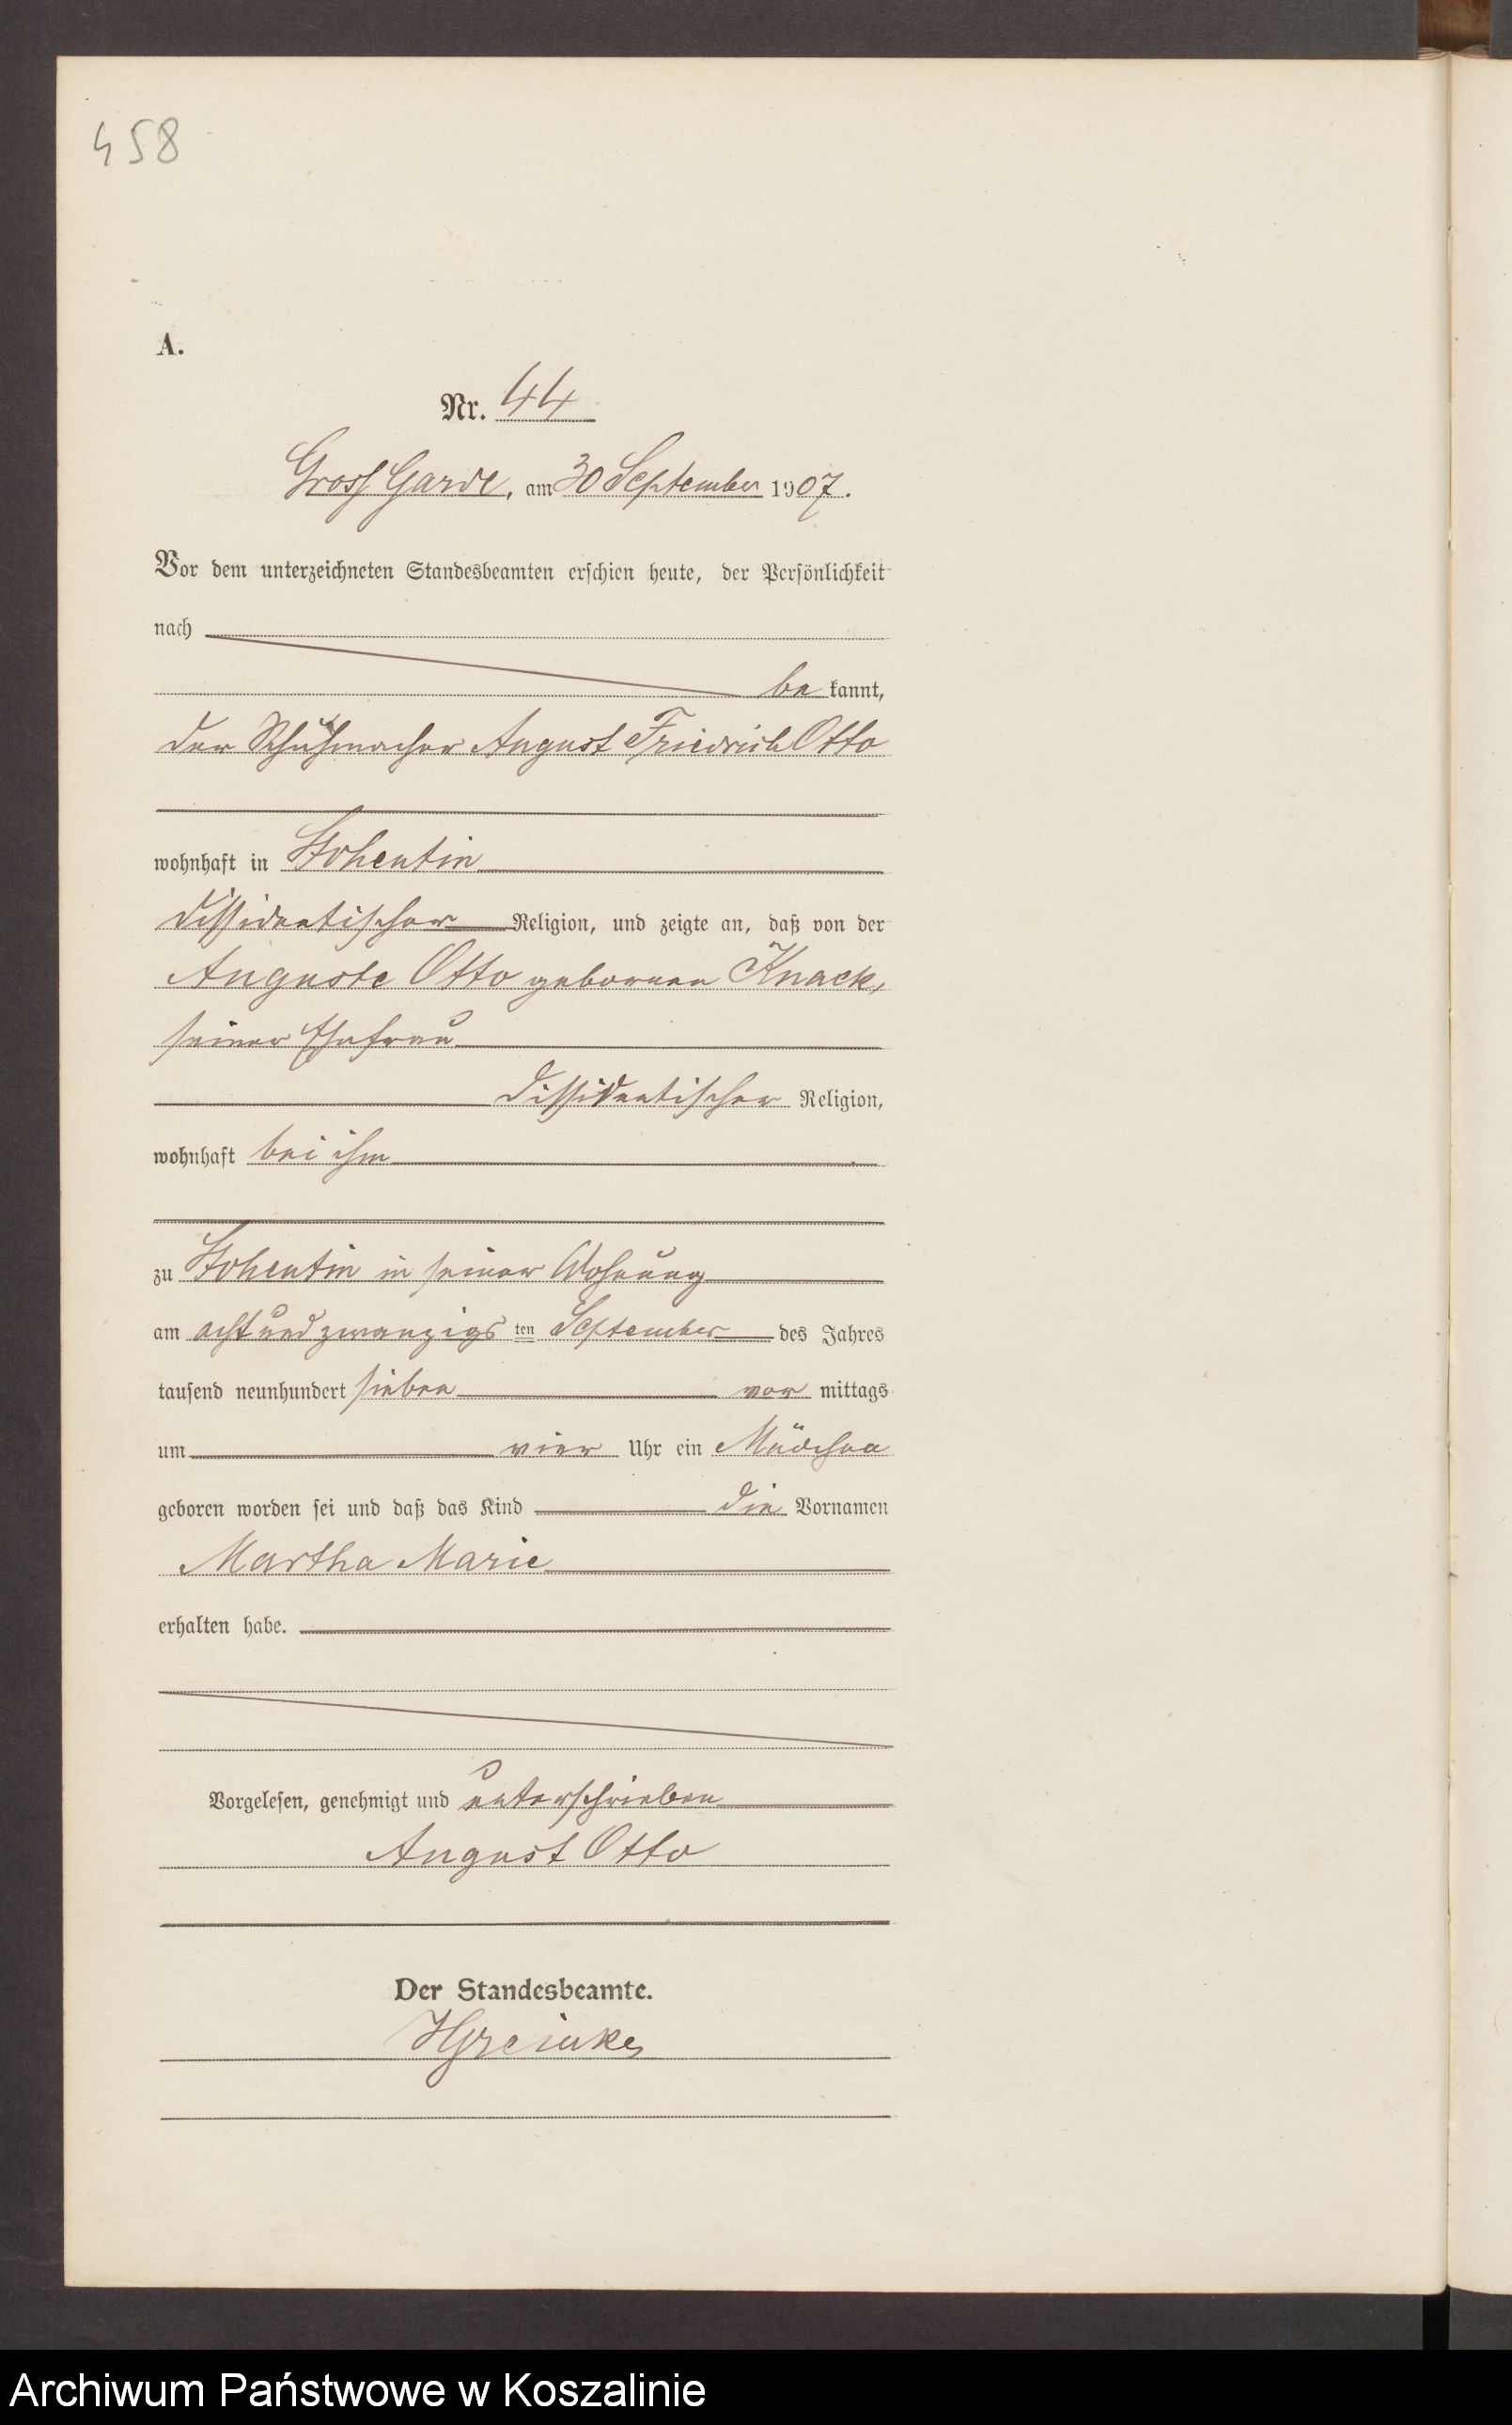 458
A.
Nr. 44
Gross Garde, am 30 September 1907.
Vor dem unterzeichneten Standesbeamten erschien heute, der Persönlichkeit
nach
be kannt,
der Schuhmacher August Friedrich Otto
wohnhaft in Stohentin
dissidentischer Religion, und zeigte an, daß von der
Auguste Otto geborenen Knack,
seiner Ehefrau
dissidentischer Religion,
wohnhaft bei ihm
zu Stohentin in seiner Wohnung
am achtundzwanzigs ten September des Jahres
tausend neunhundert sieben vor mittags
um vier Uhr ein Mädchen
geboren worden sei und daß das Kind die Vornamen
Martha Marie
erhalten habe.
Vorgelesen, genehmigt und unterschrieben
August Otto
Der Standesbeamte.
Archiwum Państwowe w Koszalinie